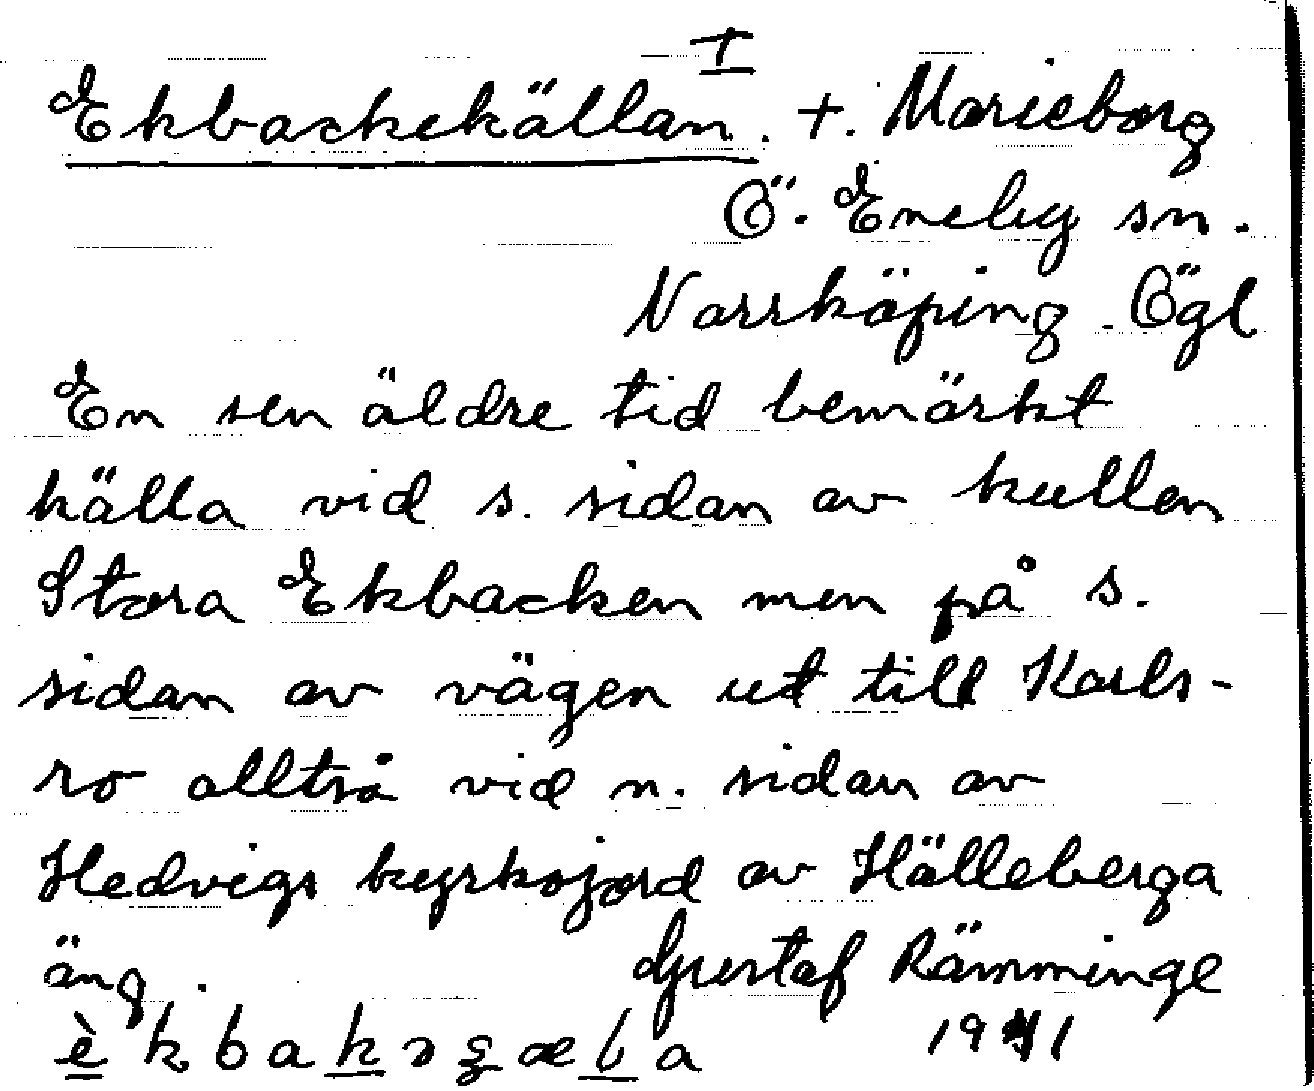 Ekbackekällan. +. Marieborg
Ö. Eneby sn.
Norrköping. Ögl
En sen äldre tid bemärkt
källa vid s. sidan av kullen
Stora Ekbacken men på s.
sidan av vägen ut till Karls-
ro alltså vid n. sidan av
Hedvigs kyrkojord av Hälleberga
äng. Gustaf Rämminge
1941